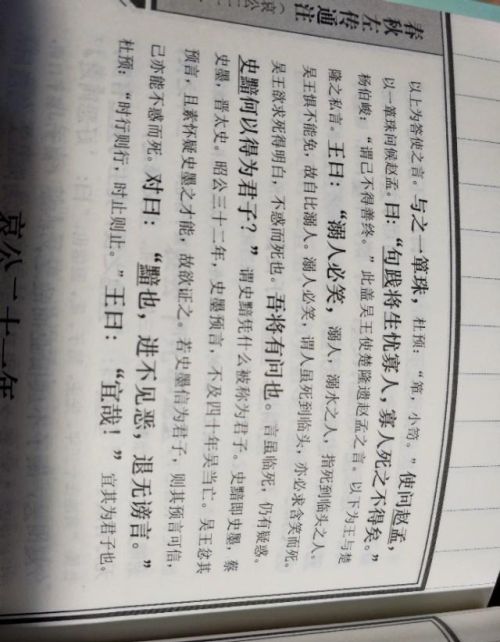 春秋左传通注
（哀公二
以上为答使之言。与之一箪珠，杜预：“箪，小笥。”使问赵孟，
以一箪珠问候赵孟。曰：“句践将生忧寡人，寡人死之不得矣。”
杨伯峻：“谓己不得善终。”此盖吴王使楚隆遗赵孟之言。以下为王与楚
隆之私言。王曰：“溺人必笑，溺人，溺水之人，指死到临头之人。
吴王惧不能免，故自比溺人。溺人必笑，谓人虽死到临头，亦必求含笑而死。
吴王欲求死得明白，不惑而死也。吾将有问也。言虽临死，仍有疑惑。
史黯何以得为君子？”谓史黯凭什么被称为君子。史黯即史墨，蔡
史墨，晋太史。昭公三十二年，史墨预言，不及四十年吴当亡。吴王忿其
预言，且素怀疑史墨之才能，故欲证之。若史墨信为君子，则其预言可信，
己亦能不惑而死。对曰：“黯也，进不见恶，退无谤言。”
杜预：“时行则行，时止则止。”王曰：“宜哉！”宜其为君子也。
哀公二十一年